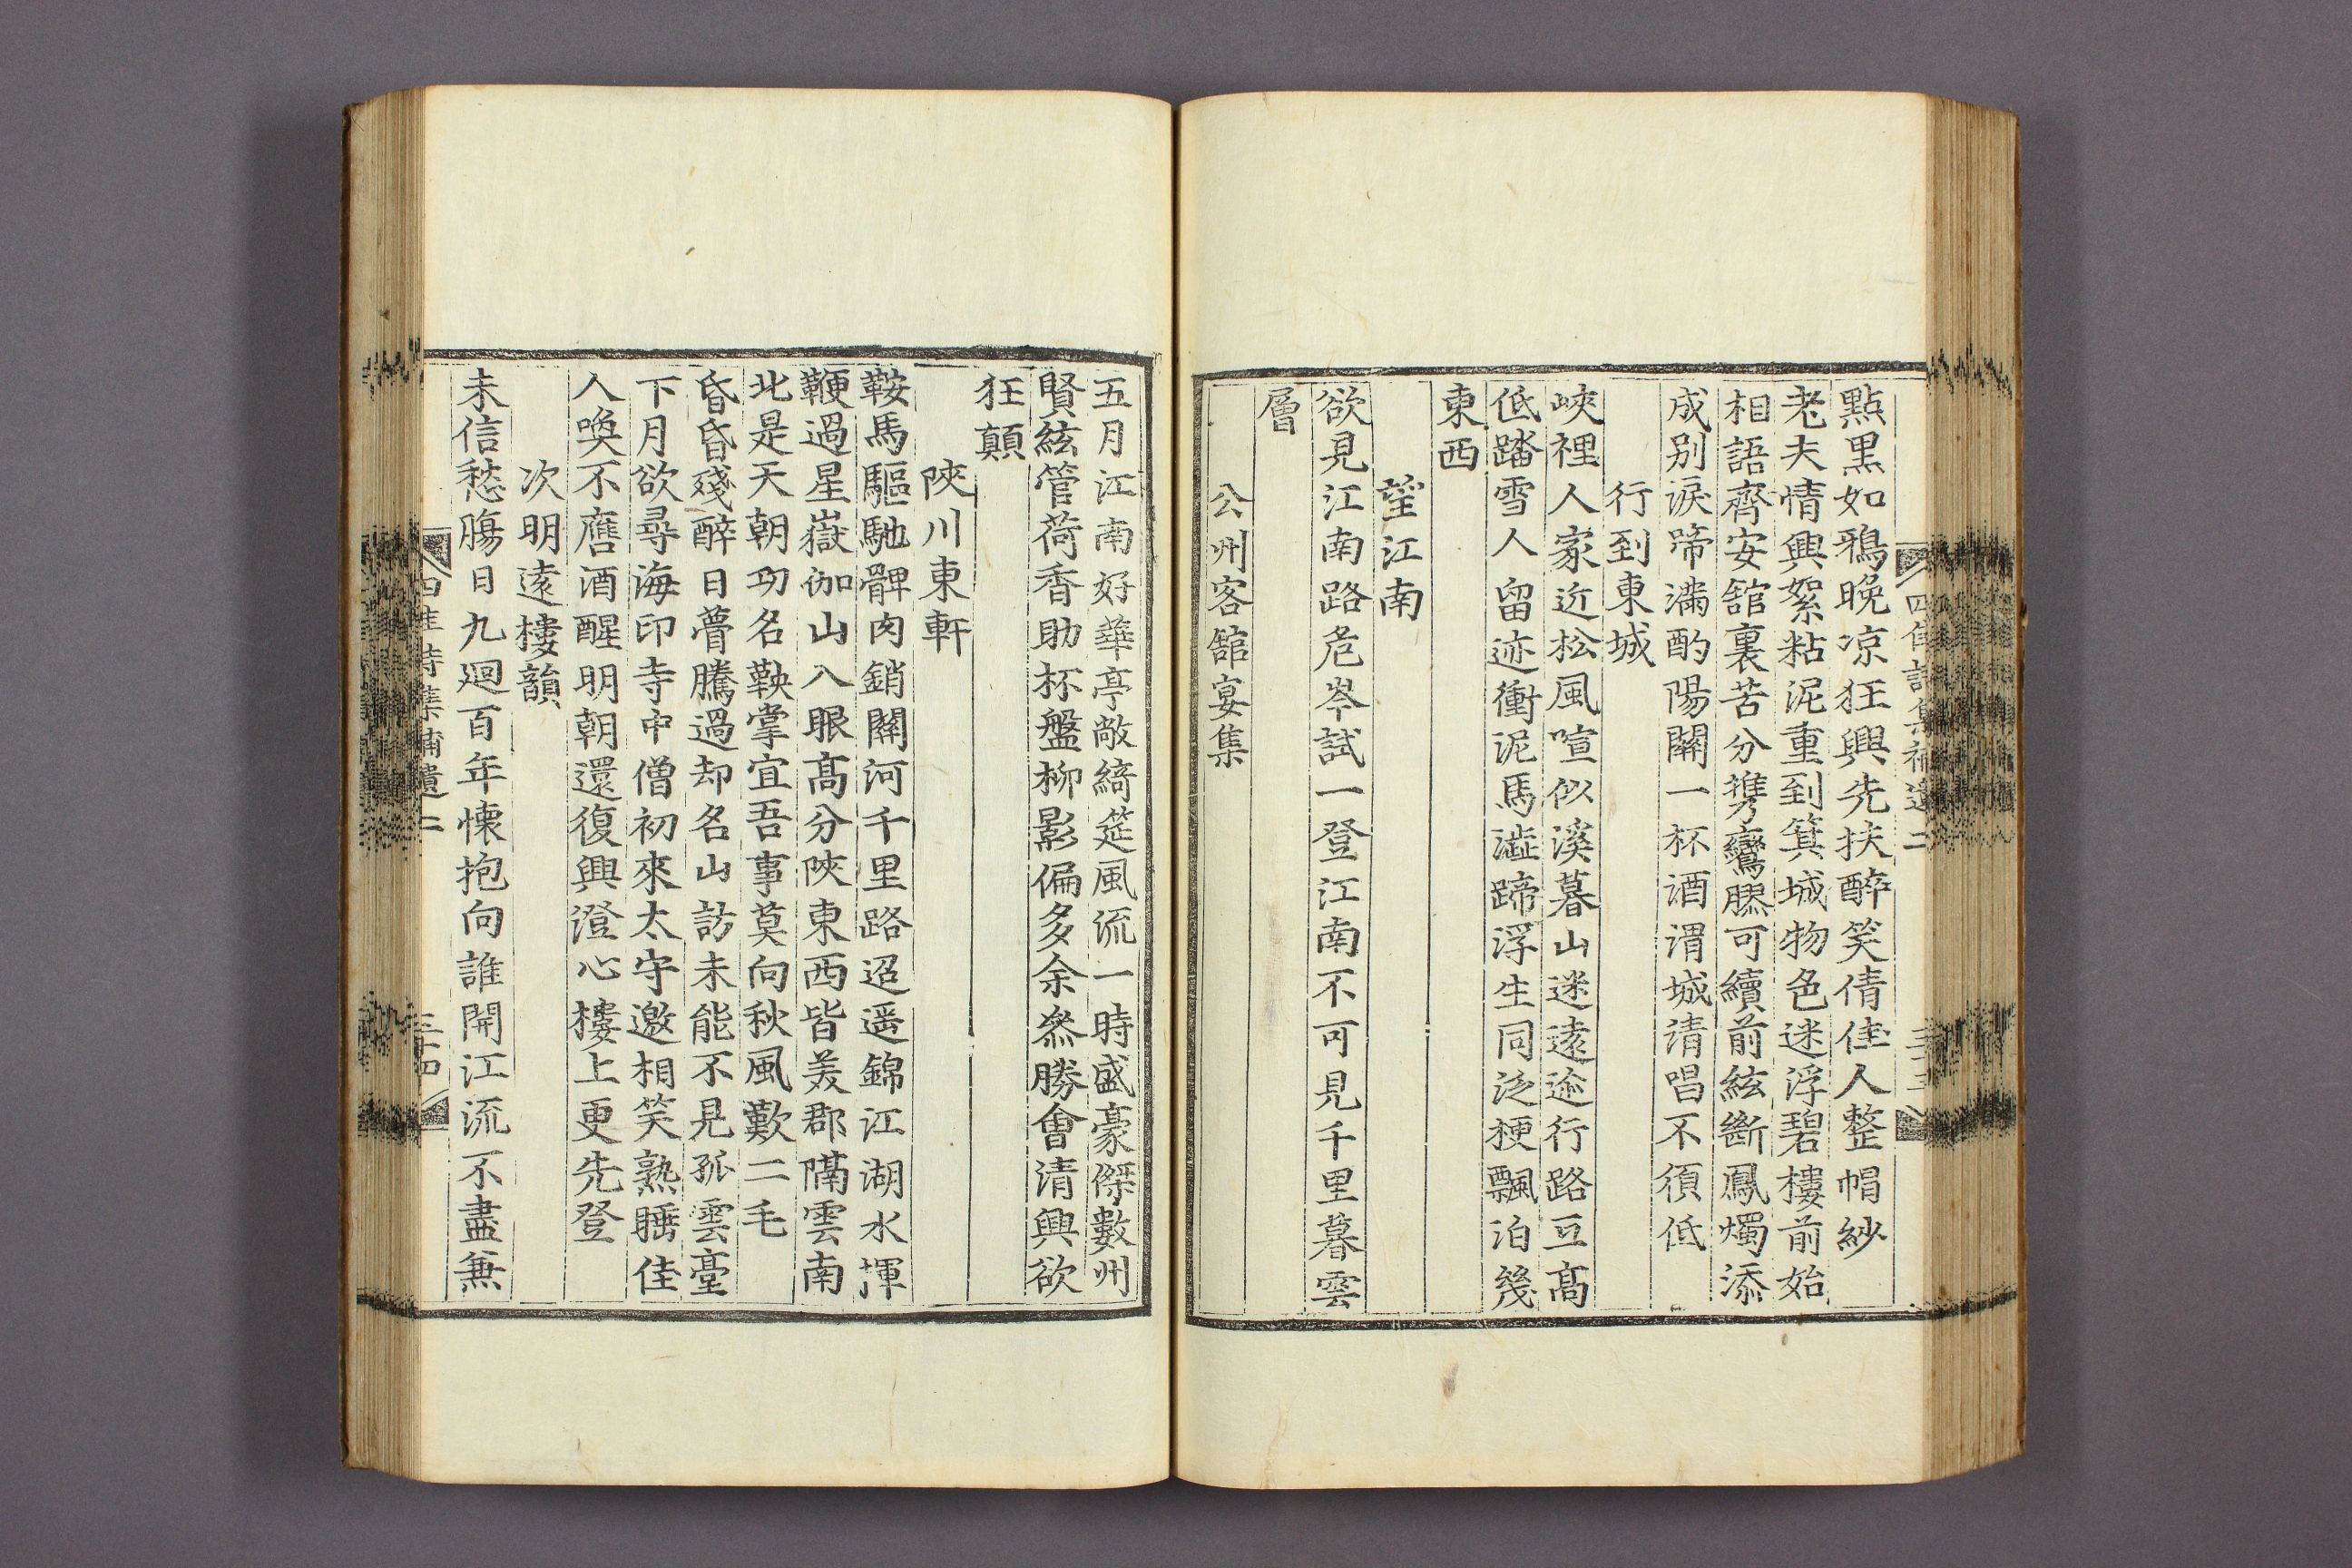 點黑如鴉晩凉狂興先扶醉笑倩佳人整帽紗
老夫情興絮粘泥重到箕城物色迷浮碧樓前始
相語齊安舘裏苦分携鸞膠可續前絃斷鳳燭添
成别淚啼滿酌陽關一杯酒渭城请唱不須低
行到東城
峽裡人家近松風喧似溪暮山迷遠近行路互高
低踏雪人留迹衝泥馬澁蹄浮生同泛梗飄泊幾
東西
望江南
欲見江南路危岑試一登江南不可見千里暮雲
層
公州客舘宴集
五月江南好華亭敞綺筵風流一時盛豪傑數州
賢絃管荷香助杯盤柳影偏多余叅勝會清興欲
狂顛
陜川東軒
鞍馬驅馳髀肉銷關河千里路迢遥錦江湖水揮
鞭過星嶽伽山入眼高分陜東西皆美郡隔雲南
北是天朝功名鞅掌宜吾事莫向秋風歎二毛
昏昏殘醉日瞢騰過却名山訪未能不見孤雲臺
下月欲尋海印寺中僧初來太守邀相笑熟睡佳
人喚不應酒醒明朝還復興澄心樓上更先登
次明遠樓韻
未信愁膓日九廻百年懷抱向誰開江流不盡無
四佳詩集補遺二
三十四